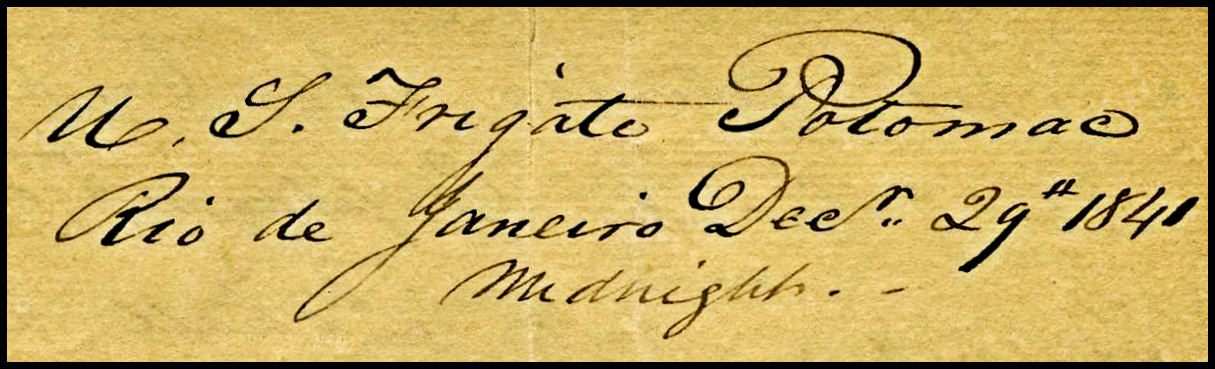 U. S. Frigate Potomac
Rio de Janeiro Decr. 29th 1841
Midnight. -